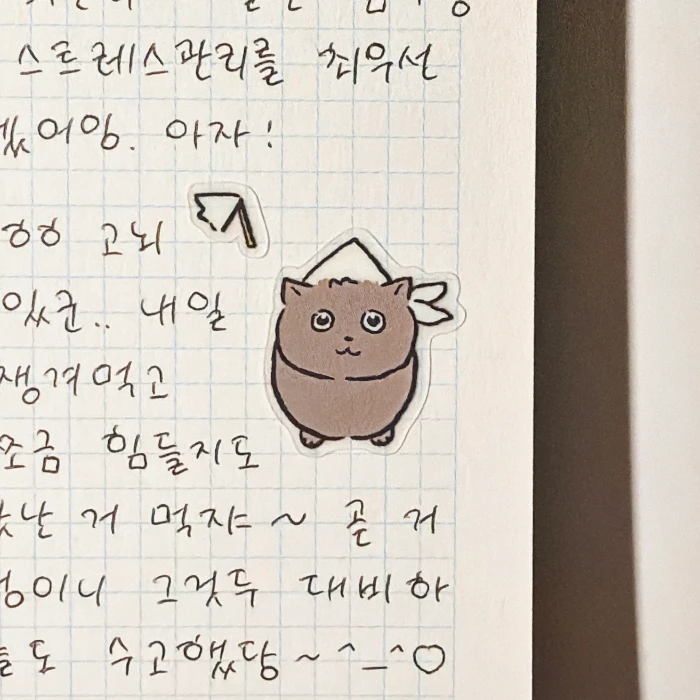 스트레스관리를 최우선
겠어잉. 아자!
ㅎㅎ 고뇌
있군.. 내일
챙겨먹고
조금 힘들지도
맛난 거 먹쟈~ 곧 거
이니 그것두 대비하
도 수고했당~^_^♡